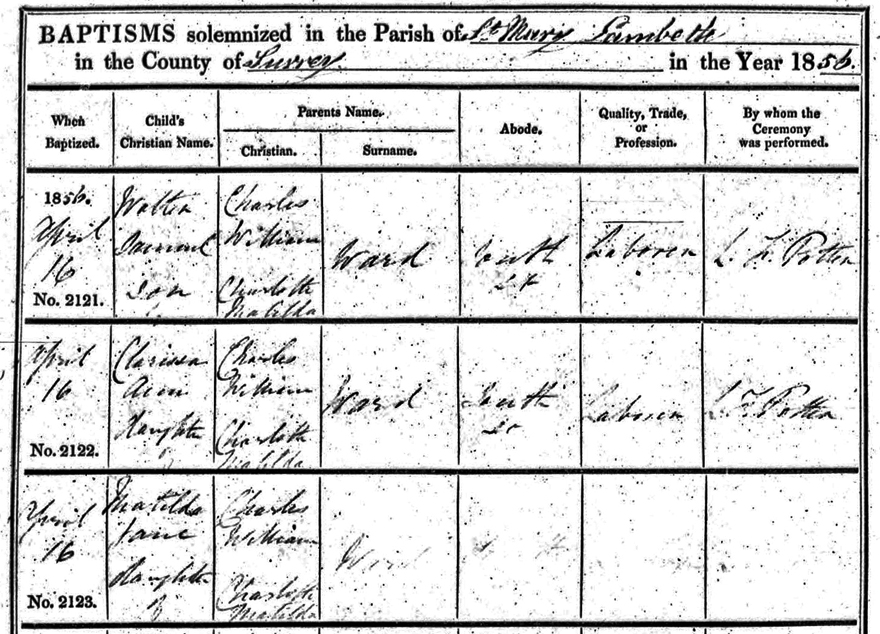 BAPTISMS solemnized in the Parish of St. Mary Lambeth
in the County of Surrey in the Year 1856.
When
Baptized.
Child's
Christian Name.
Parents Name.
Christian.
Surname.
Abode.
Quality, Trade,
or
Profession.
By whom the
Ceremony
was performed.
1856.
April
16
No. 2121.
Walter
Samuel
son
of
Charles
William
Charlotte
Matilda
Ward
South
St
Laborer
L. F. Potter
April
16
No. 2122.
Clarissa
Ann
daughter
of
Charles
William
Charlotte
Matilda
Ward
South
St
Laborer
L. F. Potter
April
16
No. 2123.
Matilda
Jane
daughter
of
Charles
William
Charlotte
Matilda
Ward